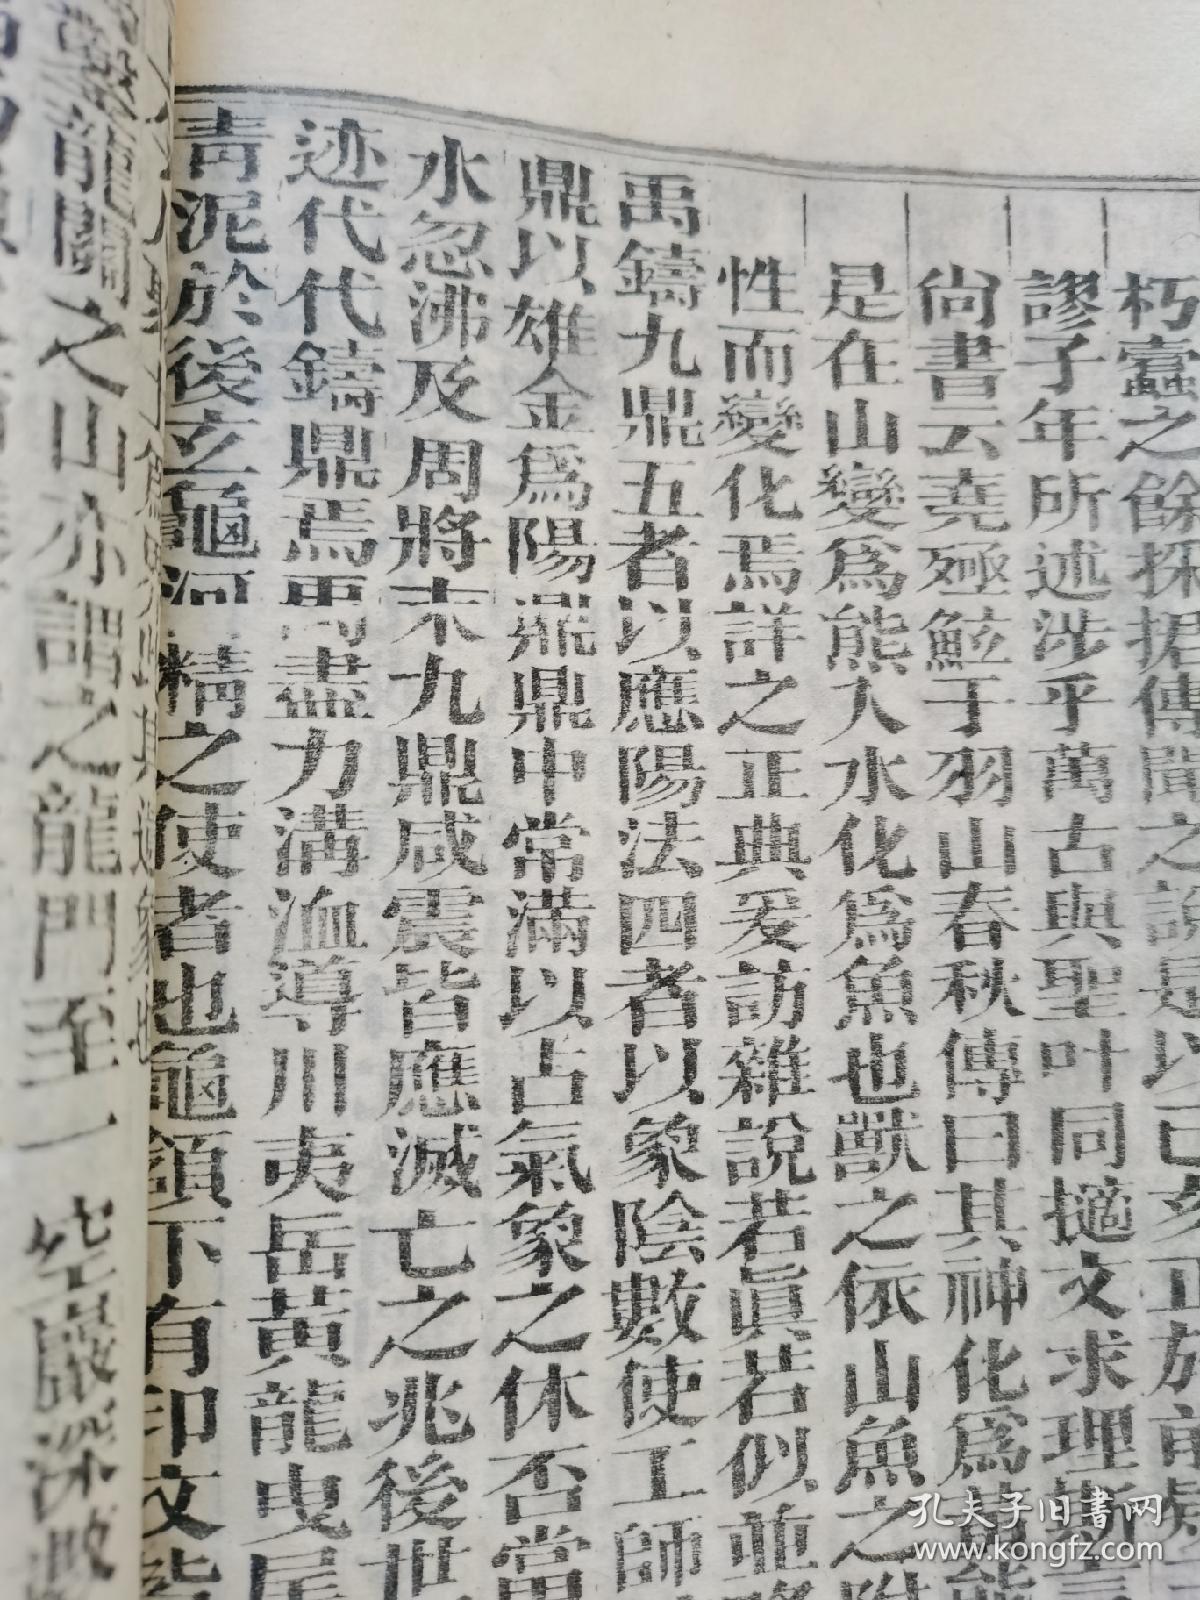 朽蠹之餘採捃傳聞之說是以己亥正於前
謬子年所述涉乎萬古與聖叶同擿文求理斯言
尚書云堯殛鯀于羽山春秋傳曰其神化爲
是在山變爲熊入水化爲魚也獸之依山魚之附
性而變化焉詳之正典爰訪雜說若眞若似並
禹鑄九鼎五者以應陽法四者以象陰數使工師
鼎以雄金爲陽鼎鼎中常滿以占氣象之休否當
水忽沸及周將末九鼎咸震皆應滅亡之兆後世
迹代代鑄鼎焉禹盡力溝洫導川夷岳黃龍曳尾
青泥於後玄龜河精之使者也龜頷下有印文皆
龍關之山亦謂之龍門至一空巖深數
孔夫子旧書网
www.kongfz.com